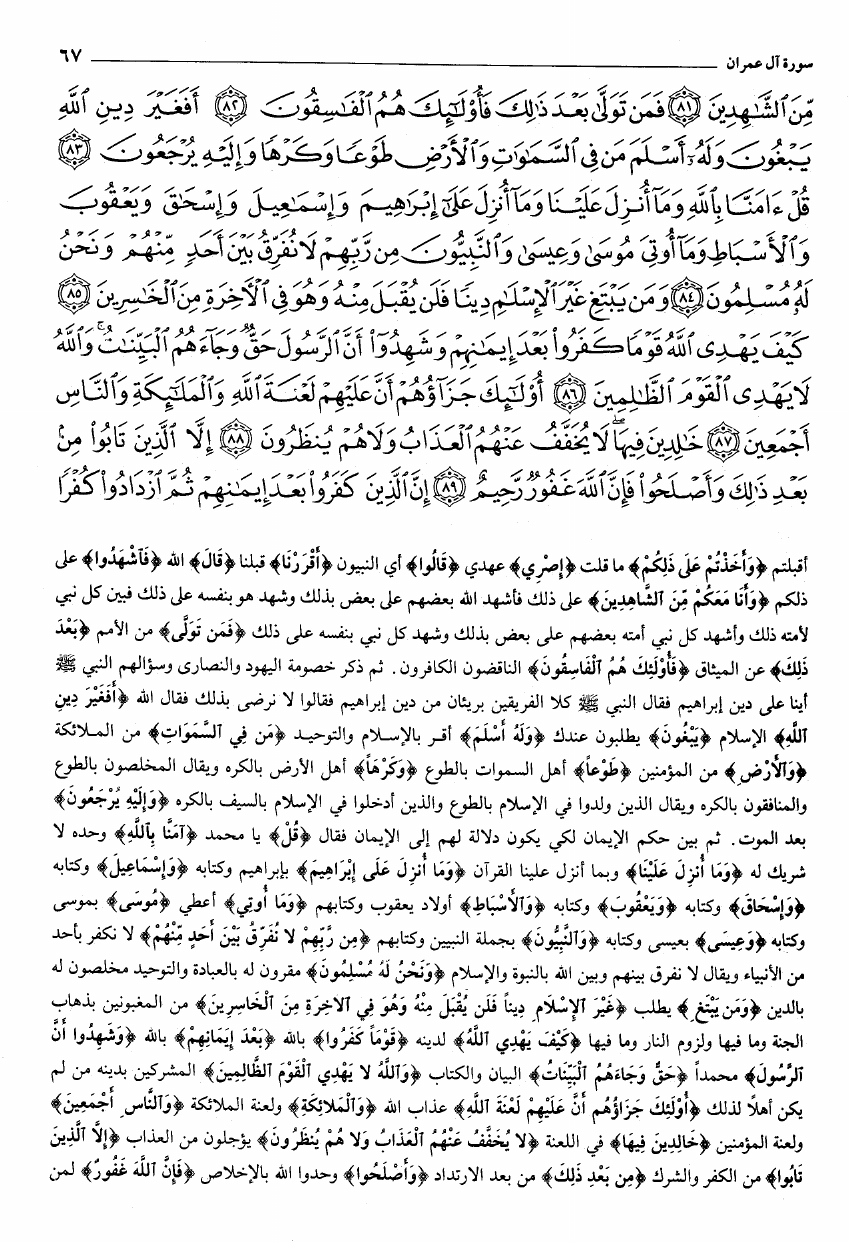 سورة آل عمران ٦٧
مِّنَ ٱلشَّٰهِدِينَ ﴿٨١﴾ فَمَن تَوَلَّىٰ بَعْدَ ذَٰلِكَ فَأُو۟لَٰٓئِكَ هُمُ ٱلْفَٰسِقُونَ ﴿٨٢﴾ أَفَغَيْرَ دِينِ ٱللَّهِ
يَبْغُونَ وَلَهُۥٓ أَسْلَمَ مَن فِى ٱلسَّمَٰوَٰتِ وَٱلْأَرْضِ طَوْعًا وَكَرْهًا وَإِلَيْهِ يُرْجَعُونَ ﴿٨٣﴾
قُلْ ءَامَنَّا بِٱللَّهِ وَمَآ أُنزِلَ عَلَيْنَا وَمَآ أُنزِلَ عَلَىٰٓ إِبْرَٰهِيمَ وَإِسْمَٰعِيلَ وَإِسْحَٰقَ وَيَعْقُوبَ
وَٱلْأَسْبَاطِ وَمَآ أُوتِىَ مُوسَىٰ وَعِيسَىٰ وَٱلنَّبِيُّونَ مِن رَّبِّهِمْ لَا نُفَرِّقُ بَيْنَ أَحَدٍ مِّنْهُمْ وَنَحْنُ
لَهُۥ مُسْلِمُونَ ﴿٨٤﴾ وَمَن يَبْتَغِ غَيْرَ ٱلْإِسْلَٰمِ دِينًا فَلَن يُقْبَلَ مِنْهُ وَهُوَ فِى ٱلْءَاخِرَةِ مِنَ ٱلْخَٰسِرِينَ ﴿٨٥﴾
كَيْفَ يَهْدِى ٱللَّهُ قَوْمًا كَفَرُوا۟ بَعْدَ إِيمَٰنِهِمْ وَشَهِدُوٓا۟ أَنَّ ٱلرَّسُولَ حَقٌّ وَجَآءَهُمُ ٱلْبَيِّنَٰتُ ۚ وَٱللَّهُ
لَا يَهْدِى ٱلْقَوْمَ ٱلظَّٰلِمِينَ ﴿٨٦﴾ أُو۟لَٰٓئِكَ جَزَآؤُهُمْ أَنَّ عَلَيْهِمْ لَعْنَةَ ٱللَّهِ وَٱلْمَلَٰٓئِكَةِ وَٱلنَّاسِ
أَجْمَعِينَ ﴿٨٧﴾ خَٰلِدِينَ فِيهَا لَا يُخَفَّفُ عَنْهُمُ ٱلْعَذَابُ وَلَا هُمْ يُنظَرُونَ ﴿٨٨﴾ إِلَّا ٱلَّذِينَ تَابُوا۟ مِنۢ
بَعْدِ ذَٰلِكَ وَأَصْلَحُوا۟ فَإِنَّ ٱللَّهَ غَفُورٌ رَّحِيمٌ ﴿٨٩﴾ إِنَّ ٱلَّذِينَ كَفَرُوا۟ بَعْدَ إِيمَٰنِهِمْ ثُمَّ ٱزْدَادُوا۟ كُفْرًا
أقبلتم ﴿وَأَخَذْتُمْ عَلَى ذَلِكُمْ﴾ ما قلت ﴿إِصْرِي﴾ عهدي ﴿قَالُوا﴾ أي النبيون ﴿أَقْرَرْنَا﴾ قبلنا ﴿قَالَ﴾ الله ﴿فَآشْهَدُوا﴾ على
ذلكم ﴿وَأَنَا مَعَكُمْ مِّنَ آلشَّاهِدِينَ﴾ على ذلك فأشهد الله بعضهم على بعض بذلك وشهد هو بنفسه على ذلك فبين كل نبي
لأمته ذلك وأشهد كل نبي أمته بعضهم على بعض بذلك وشهد كل نبي بنفسه على ذلك ﴿فَمَن تَوَلَّى﴾ من الأمم ﴿بَعْدَ
ذَلِكَ﴾ عن الميثاق ﴿فَأُوْلَئِكَ هُمُ آلْفَاسِقُونَ﴾ الناقضون الكافرون. ثم ذكر خصومة اليهود والنصارى وسؤالهم النبي ﷺ
أينا على دين إبراهيم فقال النبي ﷺ كلا الفريقين بريئان من دين إبراهيم فقالوا لا نرضى بذلك فقال الله ﴿أَفَغَيْرَ دِينِ
آللَّهِ﴾ الإسلام ﴿يَبْغُونَ﴾ يطلبون عندك ﴿وَلَهُ أَسْلَمَ﴾ أقر بالإسلام والتوحيد ﴿مَن فِي آلسَّمَوَاتِ﴾ من الملائكة
﴿وَآلأَرْضِ﴾ من المؤمنين ﴿طَوْعاً﴾ أهل السموات بالطوع ﴿وَكَرْهاً﴾ أهل الأرض بالكره ويقال المخلصون بالطوع
والمنافقون بالكره ويقال الذين ولدوا في الإسلام بالطوع والذين أدخلوا في الإسلام بالسيف بالكره ﴿وَإِلَيْهِ يُرْجَعُونَ﴾
بعد الموت. ثم بين حكم الإيمان لكي يكون دلالة لهم إلى الإيمان فقال ﴿قُلْ﴾ يا محمد ﴿آمَنَّا بِآللَّهِ﴾ وحده لا
شريك له ﴿وَمَا أُنزِلَ عَلَيْنَا﴾ وبما أنزل علينا القرآن ﴿وَمَا أُنزِلَ عَلَى إِبْرَاهِيمَ﴾ بإبراهيم وكتابه ﴿وَإِسْمَاعِيلَ﴾ وكتابه
﴿وَإِسْحَاقَ﴾ وكتابه ﴿وَيَعْقُوبَ﴾ وكتابه ﴿وَآلأَسْبَاطِ﴾ أولاد يعقوب وكتابهم ﴿وَمَا أُوتِي﴾ أعطي ﴿مُوسَى﴾ بموسى
وكتابه ﴿وَعِيسَى﴾ بعيسى وكتابه ﴿وَآلنَّبِيُّونَ﴾ بجملة النبيين وكتابهم ﴿مِن رَّبِّهِمْ لا نُفَرِّقُ بَيْنَ أَحَدٍ مِّنْهُمْ﴾ لا نكفر بأحد
من الأنبياء ويقال لا نفرق بينهم وبين الله بالنبوة والإسلام ﴿وَنَحْنُ لَهُ مُسْلِمُونَ﴾ مقرون له بالعبادة والتوحيد مخلصون له
بالدين ﴿وَمَن يَبْتَغِ﴾ يطلب ﴿غَيْرَ آلإِسْلَامِ دِيناً فَلَن يُقْبَلَ مِنْهُ وَهُوَ فِي آلآخِرَةِ مِنَ آلْخَاسِرِينَ﴾ من المغبونين بذهاب
الجنة وما فيها ولزوم النار وما فيها ﴿كَيْفَ يَهْدِي آللَّهُ﴾ لدينه ﴿قَوْماً كَفَرُوا﴾ بالله ﴿بَعْدَ إِيمَانِهِمْ﴾ بالله ﴿وَشَهِدُوا أَنَّ
آلرَّسُولَ﴾ محمداً ﴿حَقٌّ وَجَاءَهُمُ آلْبَيِّنَاتُ﴾ البيان والكتاب ﴿وَآللَّهُ لا يَهْدِي آلْقَوْمَ آلظَّالِمِينَ﴾ المشركين بدينه من لم
يكن أهلاً لذلك ﴿أُوْلَئِكَ جَزَاؤُهُم أَنَّ عَلَيْهِمْ لَعْنَةَ آللَّهِ﴾ عذاب الله ﴿وَآلْمَلائِكَةِ﴾ ولعنة الملائكة ﴿وَآلنَّاسِ أَجْمَعِينَ﴾
ولعنة المؤمنين ﴿خَالِدِينَ فِيهَا﴾ في اللعنة ﴿لا يُخَفَّفُ عَنْهُمُ آلْعَذَابُ وَلا هُمْ يُنظَرُونَ﴾ يؤجلون من العذاب ﴿إِلَّا آلَّذِينَ
تَابُوا﴾ من الكفر والشرك ﴿مِن بَعْدِ ذَلِكَ﴾ من بعد الارتداد ﴿وَأَصْلَحُوا﴾ وحدوا الله بالإخلاص ﴿فَإِنَّ آللَّهَ غَفُورٌ﴾ لمن